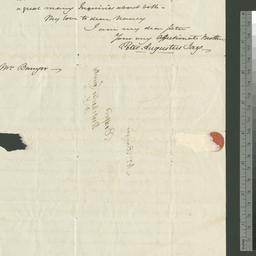 a great many Inquiries about both –
My love to dear Nancy
I am my dear Sister
Your very affectionate Brother
Peter Augustus Jay
Mrs Banyer –